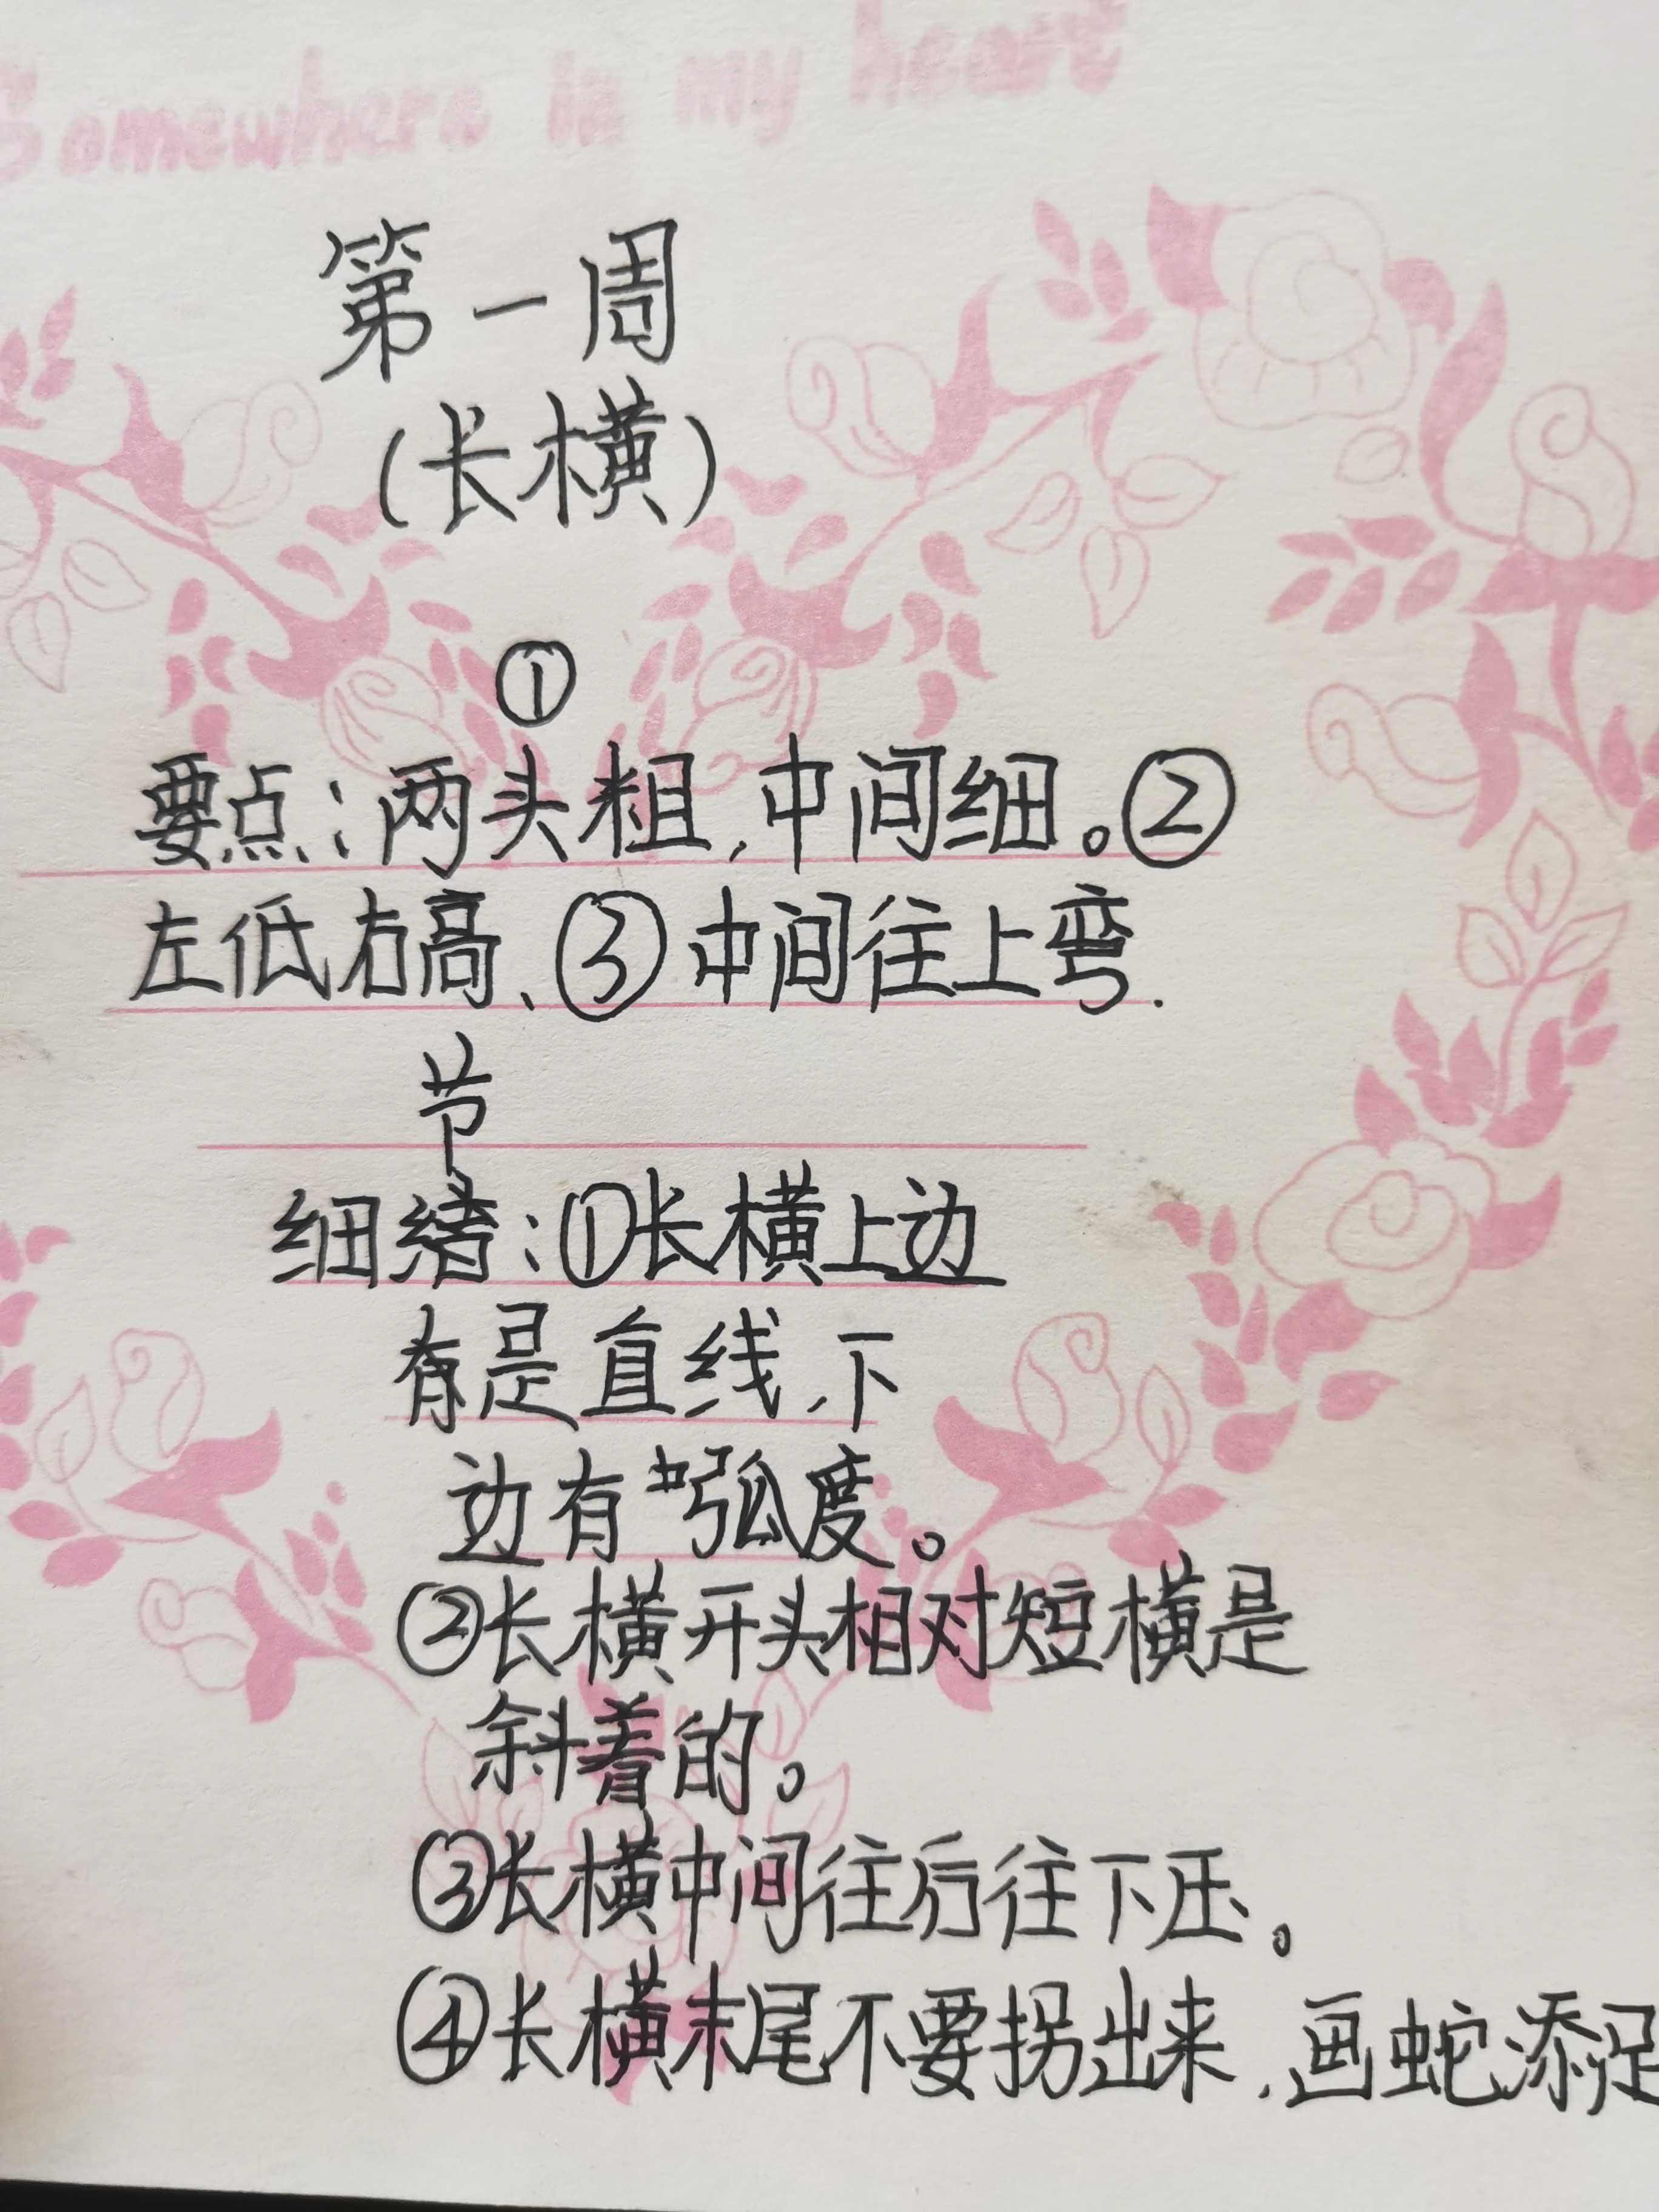 Somewhere in my heart
第一周
(长横)
①
要点:两头粗,中间细。②
左低右高、③中间往上弯.
节
细绪:①长横上边
有是直线,下
边有弧度。
②长横开头相对短横是
斜着的。
③长横中间往后往下压。
④长横末尾不要拐出来,画蛇添足